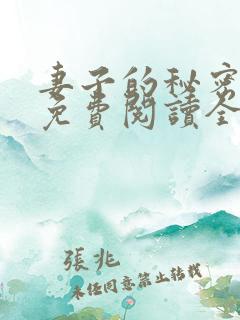 妻子的秘密
免費閱讀全
張兆
未经同意禁止转载